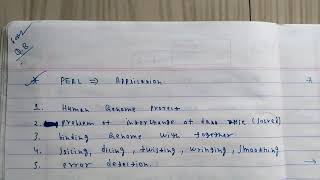 Q.8
* PERL => Application
1. Human Genome Project
2. problem of interchange of data (solved)
3. Genome with together
4. slicing, dicing, twisting, wringing, smoothing
5. error detection.